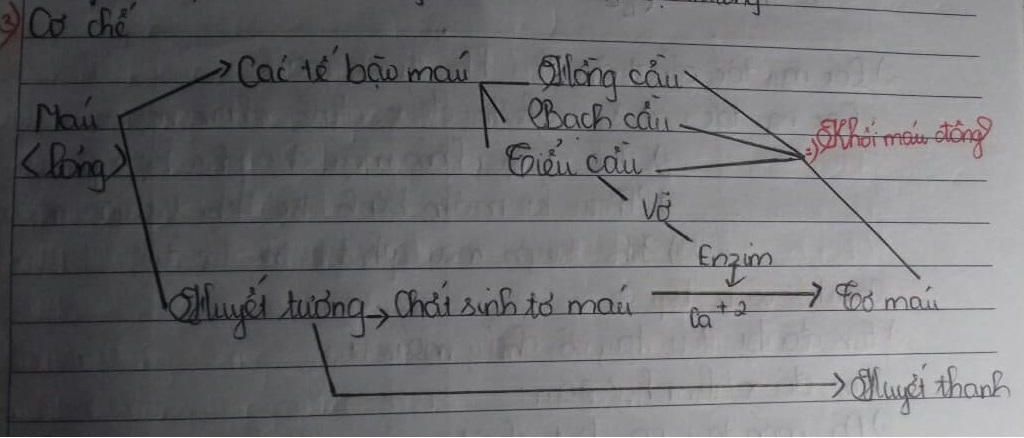 3) Cơ chế
Các tế bào máu
Hồng cầu
Máu
<lỏng>
Bạch cầu
Khối máu đông
Tiểu cầu
Vỡ
Enzim
Huyết tương → Chất sinh tơ máu
Ca+2
Tơ máu
Huyết thanh